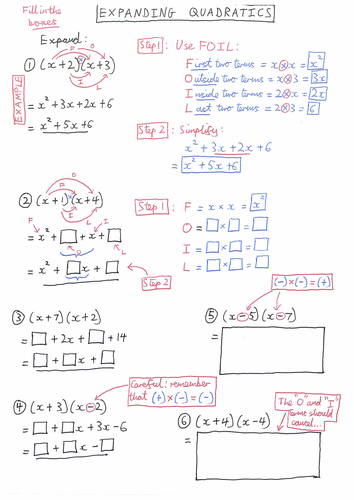 Fill in the boxes
EXPANDING QUADRATICS
Expand:
F O
① (x+2)(x+3)
I
L
EXAMPLE
= x² + 3x + 2x + 6
= x² + 5x + 6
Step 1: Use FOIL:
First two terms = x ⊗ x = x²
Outside two terms = x ⊗ 3 = 3x
Inside two terms = 2 ⊗ x = 2x
Last two terms = 2 ⊗ 3 = 6
Step 2: Simplify:
x² + 3x + 2x + 6
= x² + 5x + 6
F O
② (x+1)(x+4)
I
L
F O I
= x² + □ + x + □
L
= x² + □x + □
Step 2
Step 1: F = x × x = x²
O = □ × □ = □
I = □ × □ = □
L = □ × □ = □
③ (x+7)(x+2)
= □ + 2x + □ + 14
= □ + □x + □
(-) × (-) = (+)
⑤ (x-5)(x-7)
=
Careful: remember
that (+) × (-) = (-)
④ (x+3)(x-2)
= □ + □x + 3x - 6
= □ + □x - □
The "O" and "I"
terms should
cancel...
⑥ (x+4)(x-4)
=